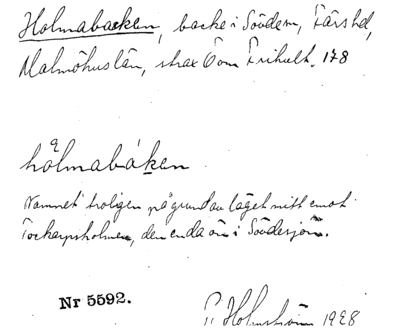 Holmabacken, backe i Sövdem, Färs hd,
Malmöhus län, strax O om Frihult. 178
hålmabáken
Namnet troligen på grund av läget mitt emot
Tockarpsholmen, den enda ön i Sövdesjön.
Nr 5592.
Holmström 1928